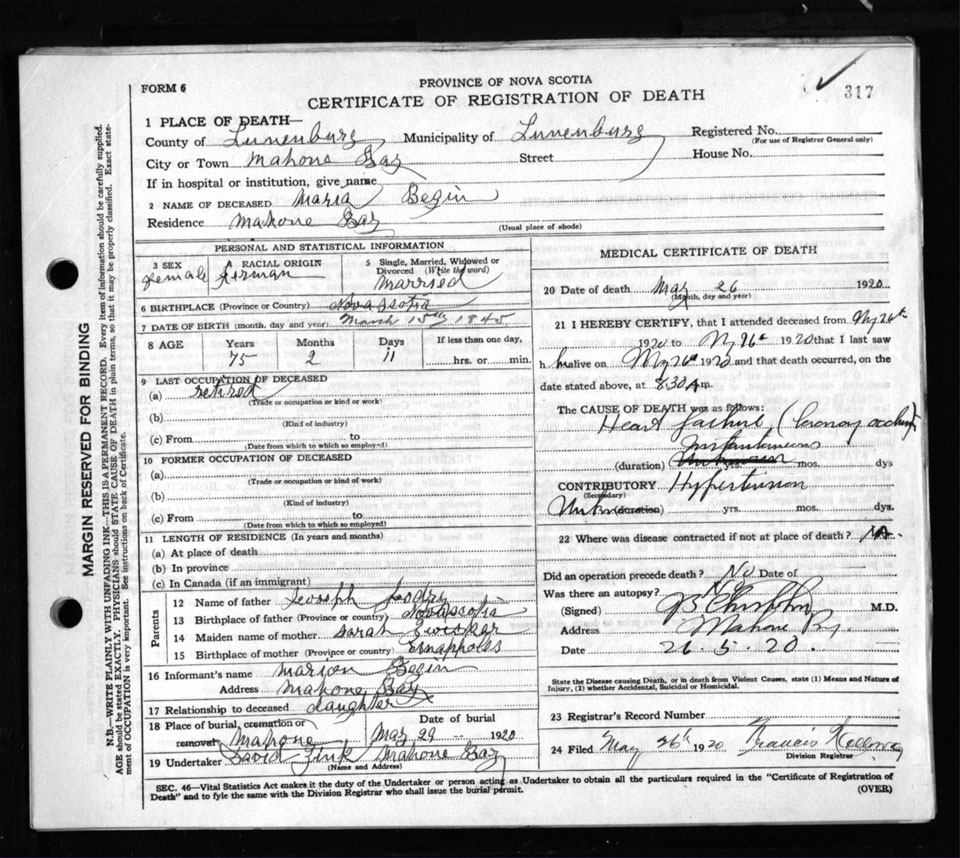 317
FORM 6
PROVINCE OF NOVA SCOTIA
CERTIFICATE OF REGISTRATION OF DEATH
1 PLACE OF DEATH—
County of Lunenburg Municipality of Lunenburg Registered No.
(For use of Registrar General only)
City or Town Mahone Bay Street House No.
If in hospital or institution, give name
2 NAME OF DECEASED Maria Begin
Residence Mahone Bay
(Usual place of abode)
PERSONAL AND STATISTICAL INFORMATION
3 SEX 4 RACIAL ORIGIN 5 Single, Married, Widowed or Divorced (Write the word)
Female German Married
6 BIRTHPLACE (Province or Country) Nova Scotia
7 DATE OF BIRTH (month, day and year) March 15th 1845
8 AGE Years Months Days If less than one day,
75 2 11 hrs. or min.
9 LAST OCCUPATION OF DECEASED
(a) retired
(Trade or occupation or kind or work)
(b)
(Kind of industry)
(c) From to
(Date from which to which so employed)
10 FORMER OCCUPATION OF DECEASED
(a)
(Trade or occupation or kind or work)
(b)
(Kind of industry)
(c) From to
(Date from which to which so employed)
11 LENGTH OF RESIDENCE (In years and months)
(a) At place of death
(b) In province
(c) In Canada (if an immigrant)
Parents
12 Name of father
13 Birthplace of father (Province or country) Novascotia
14 Maiden name of mother Sarah Zwicker
15 Birthplace of mother (Province or country)
16 Informant's name Marion Begin
Address Mahone Bay
17 Relationship to deceased daughter
18 Place of burial, cremation or removal Mahone Date of burial May 29 1920
19 Undertaker David Zink Mahone Bay
(Name and Address)
MEDICAL CERTIFICATE OF DEATH
20 Date of death May 26 1920
(Month, day and year)
21 I HEREBY CERTIFY, that I attended deceased from My 26th
1920 to My 26th 1920 that I last saw
h alive on My 26th 1920 and that death occurred, on the
date stated above, at 8.30 A m.
The CAUSE OF DEATH was as follows:
Heart failure
Instantaneous
(duration) yrs. mos. dys
CONTRIBUTORY Hypertension
(Secondary)
(duration) yrs. mos. dys.
22 Where was disease contracted if not at place of death?
Did an operation precede death? No Date of
Was there an autopsy? No
(Signed) M.D.
Address Mahone Bay
Date 26.5.20.
State the Disease causing Death, or in death from Violent Causes, state (1) Means and Nature of
Injury, (2) whether Accidental, Suicidal or Homicidal.
23 Registrar's Record Number
24 Filed May 26th 1920 Francis
Division Registrar
SEC. 46—Vital Statistics Act makes it the duty of the Undertaker or person acting as Undertaker to obtain all the particulars required in the "Certificate of Registration of
Death" and to fyle the same with the Division Registrar who shall issue the burial permit. (OVER)
MARGIN RESERVED FOR BINDING
N.B.—WRITE PLAINLY WITH UNFADING INK—THIS IS A PERMANENT RECORD. Every item of information should be carefully supplied.
AGE should be stated EXACTLY. PHYSICIANS should STATE CAUSE OF DEATH in plain terms, so that it may be properly classified. Exact state-
ment of OCCUPATION is very important. See instructions on back of Certificate.